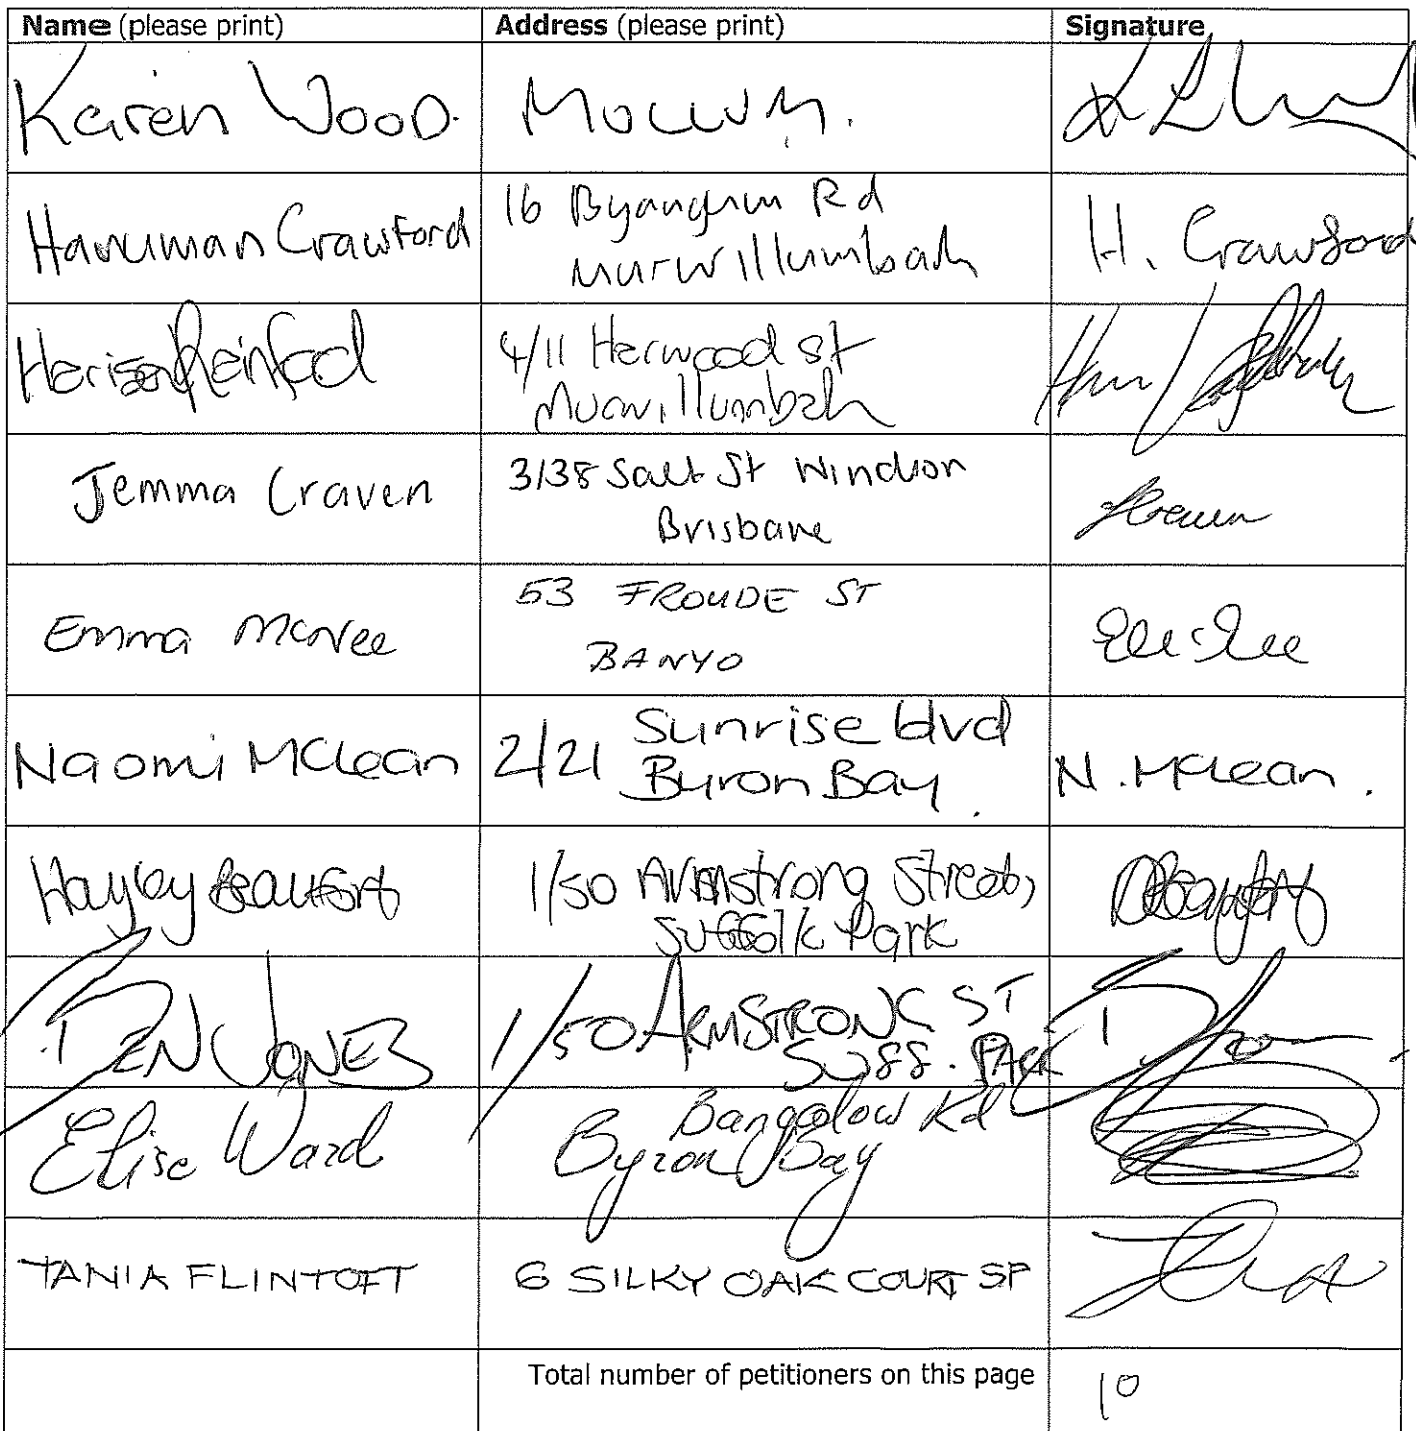 Name (please print) Address (please print) Signature
Karen Wood.
Hanuman Crawford 16 Byangum Rd H. Crawford
Murwillumbah
4/11 st
Murwillumbah
Jemma Craven 3/38 Salt St Windsor
Brisbane
Emma McNee 53 FROUDE ST
BANYO
Naomi McLean 2/21 Sunrise blvd N. McLean.
Byron Bay.
Hayley Beaufort 1/50 Armstrong Street,
Suffolk Park
BEN JONES 1/50 ARMSTRONG ST
SUFF. PARK
Elise Ward Bangalow Rd
Byron Bay
TANIA FLINTOFT 6 SILKY OAK COURT SP
Total number of petitioners on this page 10